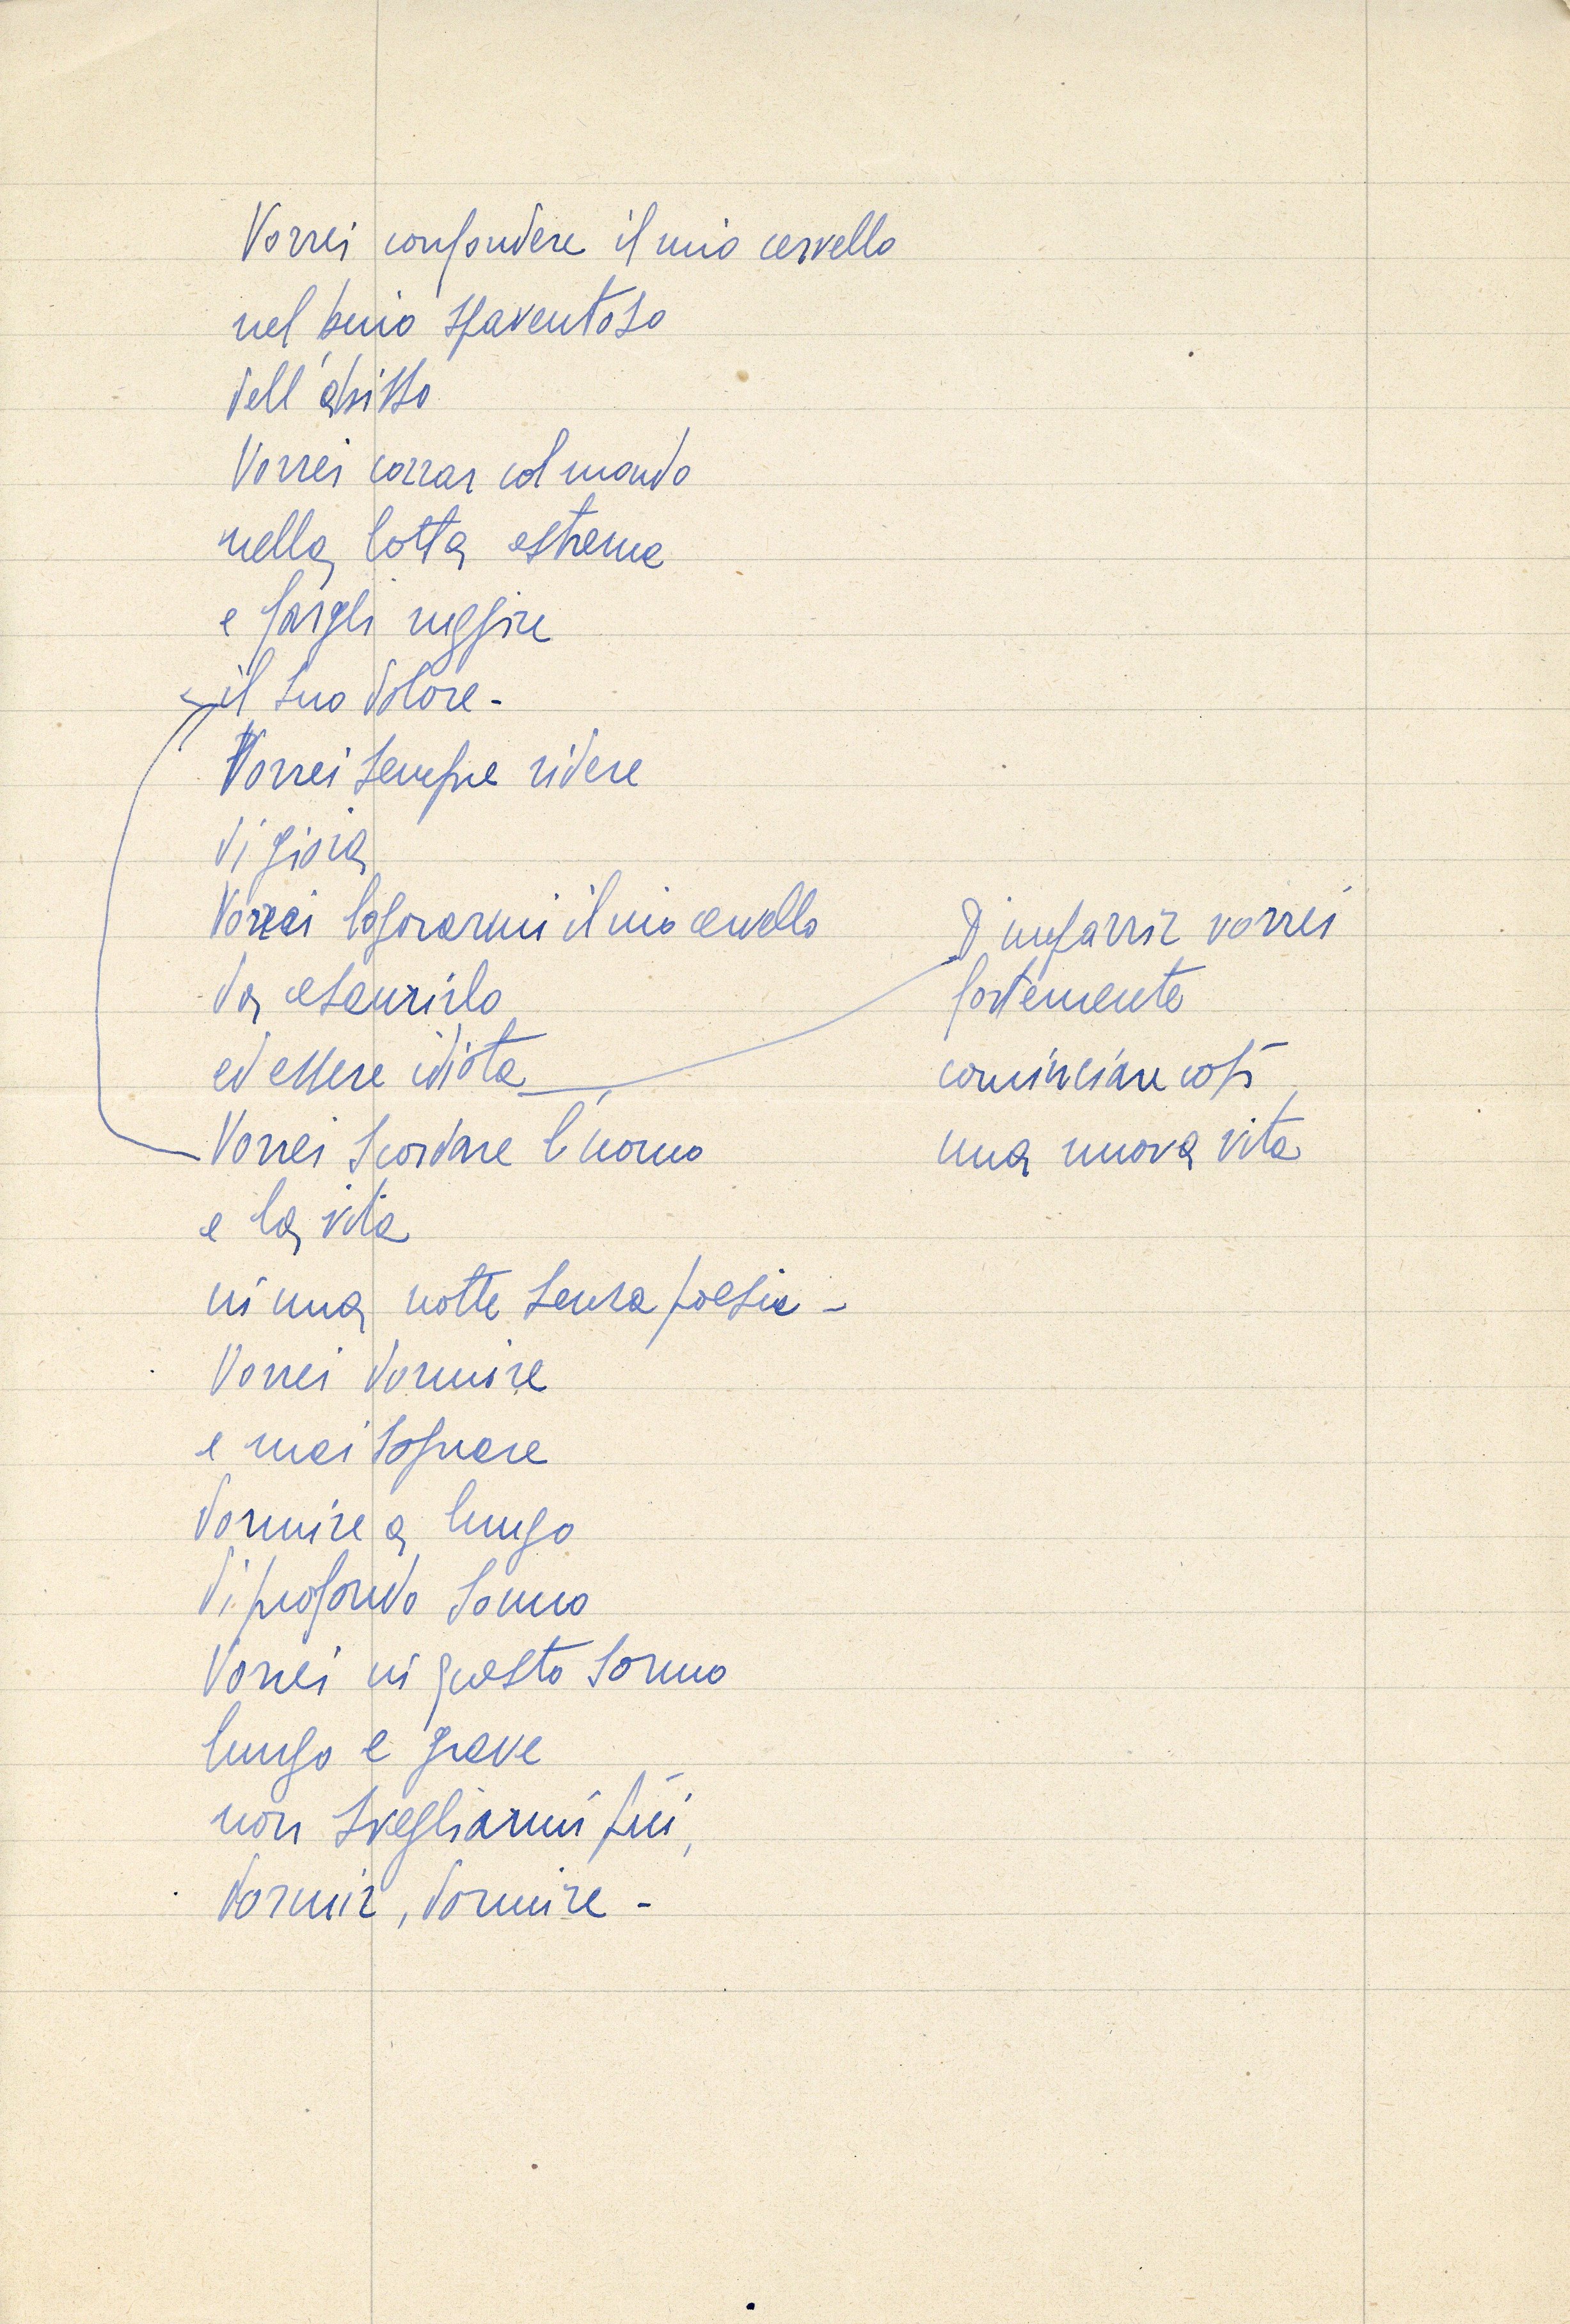 Vorrei confondere il mio cervello
nel buio spaventoso
dell'abisso
Vorrei cozzar col mondo
nella lotta estrema
e fargli ruggire
il suo dolore -
Vorrei sempre ridere
di gioia
Vorrei logorarmi il mio cervello
da esaurirlo
ed essere idiota
Vorrei scordare l'uomo
e la vita
in una notte senza poesia -
Vorrei dormire
e mai sognare
dormire a lungo
di profondo sonno
Vorrei in questo sonno
lungo e grave
non svegliarmi più,
dormir, dormire -
vorrei
fortemente
cominciare così
una nuova vita